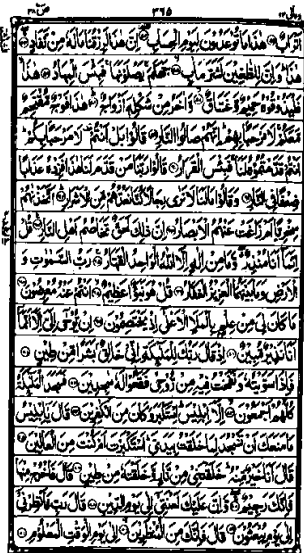 ص ٣٨ ٣٦٥ ومالي ٢٣
اَتْرَابٌ ۝ هٰذَا مَا تُوْعَدُوْنَ لِيَوْمِ الْحِسَابِ ۝ اِنَّ هٰذَا لَرِزْقُنَا مَا لَهٗ مِنْ نَّفَادٍ ۝
هٰذَا وَاِنَّ لِلطّٰغِيْنَ لَشَرَّ مَاٰبٍ ۝ جَهَنَّمَ يَصْلَوْنَهَا فَبِئْسَ الْمِهَادُ ۝ هٰذَا
فَلْيَذُوْقُوْهُ حَمِيْمٌ وَّغَسَّاقٌ ۝ وَّاٰخَرُ مِنْ شَكْلِهٖ اَزْوَاجٌ ۝ هٰذَا فَوْجٌ مُّقْتَحِمٌ
مَّعَكُمْ لَا مَرْحَبًا بِهِمْ اِنَّهُمْ صَالُوا النَّارِ ۝ قَالُوْا بَلْ اَنْتُمْ لَا مَرْحَبًا بِكُمْ
اَنْتُمْ قَدَّمْتُمُوْهُ لَنَا فَبِئْسَ الْقَرَارُ ۝ قَالُوْا رَبَّنَا مَنْ قَدَّمَ لَنَا هٰذَا فَزِدْهُ عَذَابًا
ضِعْفًا فِي النَّارِ ۝ وَقَالُوْا مَا لَنَا لَا نَرٰى رِجَالًا كُنَّا نَعُدُّهُمْ مِّنَ الْاَشْرَارِ ۝ اَتَّخَذْنٰهُمْ
سِخْرِيًّا اَمْ زَاغَتْ عَنْهُمُ الْاَبْصَارُ ۝ اِنَّ ذٰلِكَ لَحَقٌّ تَخَاصُمُ اَهْلِ النَّارِ ۝ قُلْ
اِنَّمَا اَنَا مُنْذِرٌ وَّمَا مِنْ اِلٰهٍ اِلَّا اللّٰهُ الْوَاحِدُ الْقَهَّارُ ۝ رَبُّ السَّمٰوٰتِ وَ
الْاَرْضِ وَمَا بَيْنَهُمَا الْعَزِيْزُ الْغَفَّارُ ۝ قُلْ هُوَ نَبَؤٌا عَظِيْمٌ ۝ اَنْتُمْ عَنْهُ مُعْرِضُوْنَ ۝
مَا كَانَ لِيَ مِنْ عِلْمٍ بِالْمَلَاِ الْاَعْلٰى اِذْ يَخْتَصِمُوْنَ ۝ اِنْ يُّوْحٰى اِلَيَّ اِلَّا اَنَّمَا
اَنَا نَذِيْرٌ مُّبِيْنٌ ۝ اِذْ قَالَ رَبُّكَ لِلْمَلٰٓئِكَةِ اِنِّيْ خَالِقٌ بَشَرًا مِّنْ طِيْنٍ ۝
فَاِذَا سَوَّيْتُهٗ وَنَفَخْتُ فِيْهِ مِنْ رُّوْحِيْ فَقَعُوْا لَهٗ سٰجِدِيْنَ ۝ فَسَجَدَ الْمَلٰٓئِكَةُ
كُلُّهُمْ اَجْمَعُوْنَ ۝ اِلَّا اِبْلِيْسَ اِسْتَكْبَرَ وَكَانَ مِنَ الْكٰفِرِيْنَ ۝ قَالَ يٰٓاِبْلِيْسُ
مَا مَنَعَكَ اَنْ تَسْجُدَ لِمَا خَلَقْتُ بِيَدَيَّ اَسْتَكْبَرْتَ اَمْ كُنْتَ مِنَ الْعَالِيْنَ ۝
قَالَ اَنَا خَيْرٌ مِّنْهُ خَلَقْتَنِيْ مِنْ نَّارٍ وَّخَلَقْتَهٗ مِنْ طِيْنٍ ۝ قَالَ فَاخْرُجْ مِنْهَا
فَاِنَّكَ رَجِيْمٌ ۝ وَّاِنَّ عَلَيْكَ لَعْنَتِيْ اِلٰى يَوْمِ الدِّيْنِ ۝ قَالَ رَبِّ فَاَنْظِرْنِيْ
اِلٰى يَوْمِ يُبْعَثُوْنَ ۝ قَالَ فَاِنَّكَ مِنَ الْمُنْظَرِيْنَ ۝ اِلٰى يَوْمِ الْوَقْتِ الْمَعْلُوْمِ ۝